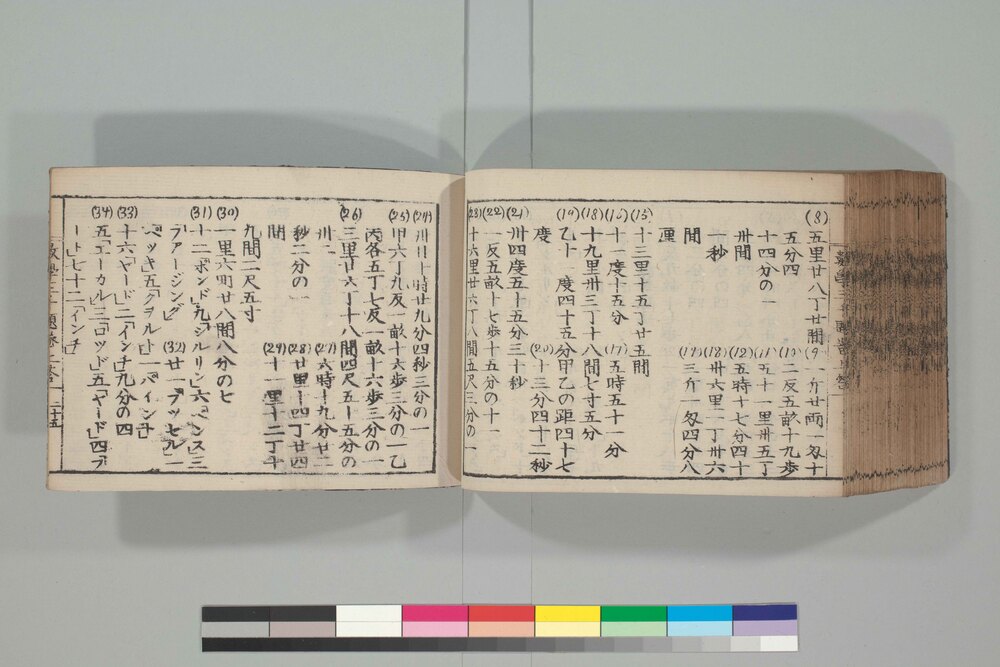 (8) 五里廿八丁廿間 (9) 一斤廿両一匁十
五分四 (10) 二反五畝十九歩
十四分の一 (11) 五十一里卅五丁
卅間 (12) 五時十七分四十
一秒 (18) 卅六里二丁卅六
間 三斤一匁四分八
厘
(15) 十三里十五丁廿五間
(16) 十一度十五分 (17) 五時五十一分
(18) 十九里卅三丁十八間七寸五分
(19) 乙十 度四十五分甲乙の距四十七
度 (20) 十三分四十二秒
(21) 卅四度五十五分三十秒
(22) 一反五畝十七歩十五分の十一
(23) 十六里廿六丁八間五尺三分の一
(24) 卅日十時廿九分四秒三分の一
(25) 甲六丁九反一畝十六歩三分の一乙
丙各五丁七反一畝十六歩三分の一
(26) 三里廿六丁十八間四尺五十五分の
卅二 (27) 六時十九分廿二
秒二分の一 (28) 廿里十四丁廿四
間 (29) 十一里十二丁十
九間二尺五寸
(30) 一里六町廿八間八分の七
(31) 十二「ポンド」九「シルリン」六「ペンス」三
「ファージング」 (32) 廿一「ブッセル」一
「ペッキ」五「グヲルト」一「パインナ」
(33) 十六「ヤード」二「インチ」九分の四
(34) 五「エーカル」三「ロッド」五「ヤード」四「フ
ート」七十二「インチ」